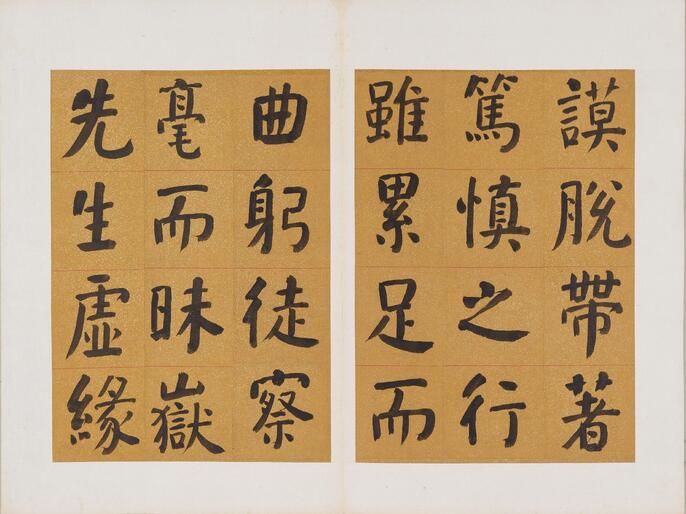 謨脫帶著
篤慎之行
雖累足而
曲躬徒察
毫而昧嶽
先生虛緣